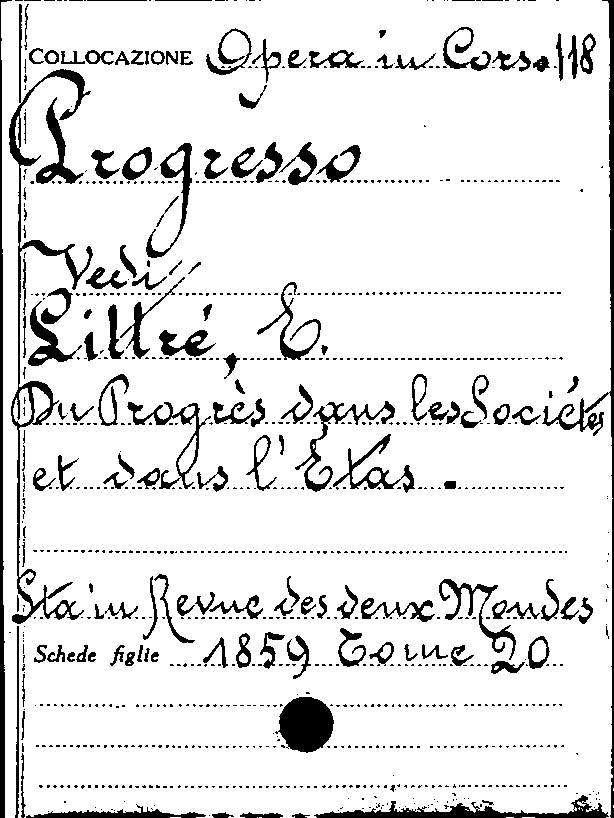 COLLOCAZIONE Opera in Corso 118
Progresso
Vedi
Littré, E.
Du Progrès dans les Sociétes
et dans l'Étas.
Sta in Revue des deux Mondes
Schede figlie 1859 Tome 20